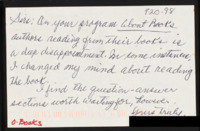 4-20-98
Sirs: On your program About Books,
authors reading from their books is
a deep disappointment. In some instances,
I changed my mind about reading
the book.
I find the question-answer
sections worth waiting for, however.
Yours truly,